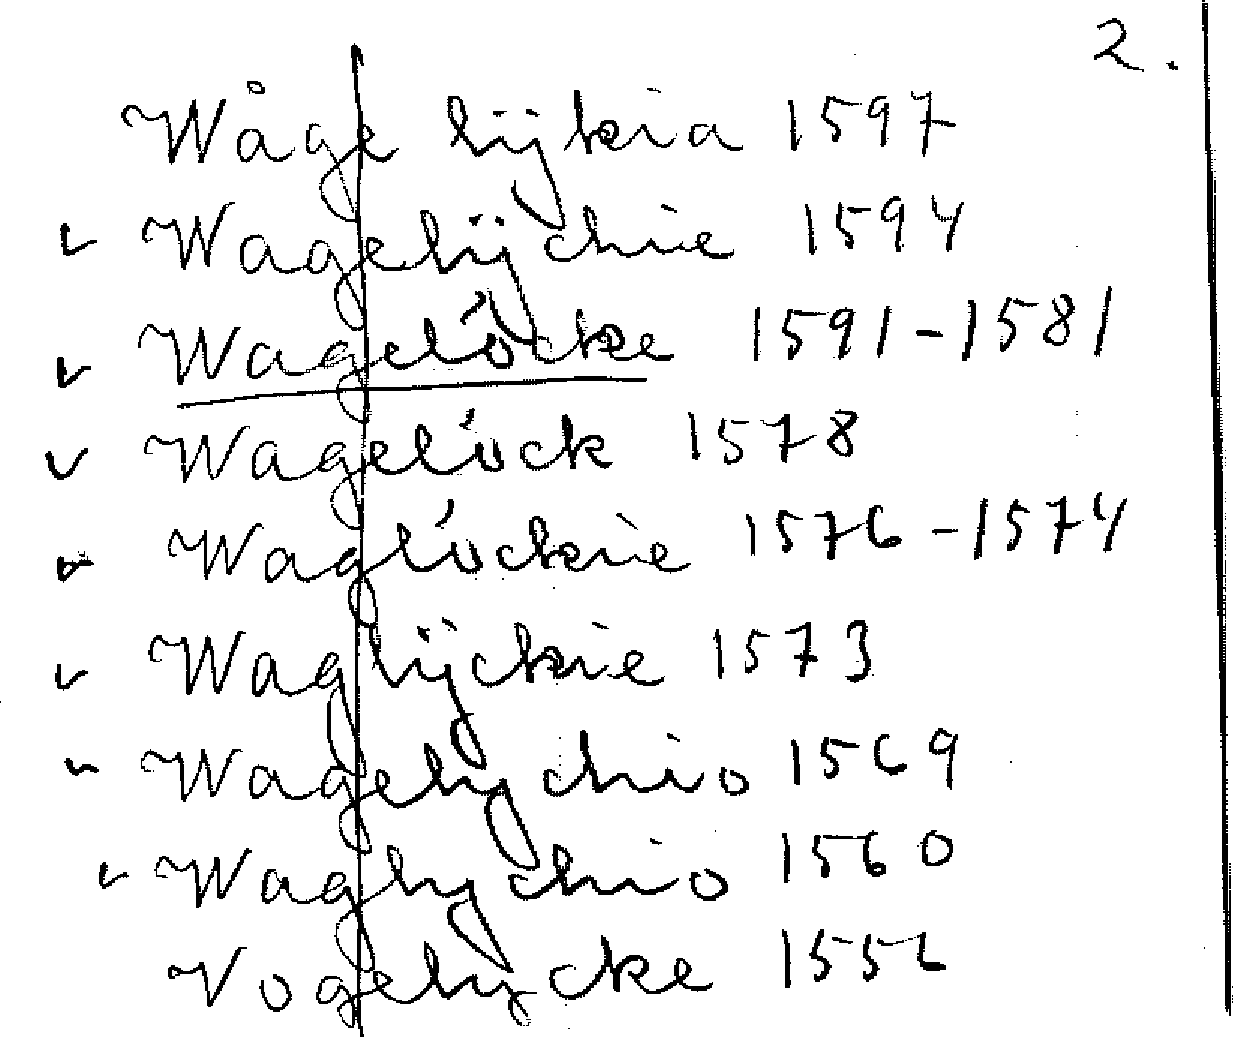 2.
Wåge lÿkia 1597
Wagelÿchie 1594
Wagelöcke 1591-1581
Wagelöck 1578
Waglöckie 1576-1574
Waglÿckie 1573
Wagelychio 1569
Waglychio 1560
Vogelycke 1556